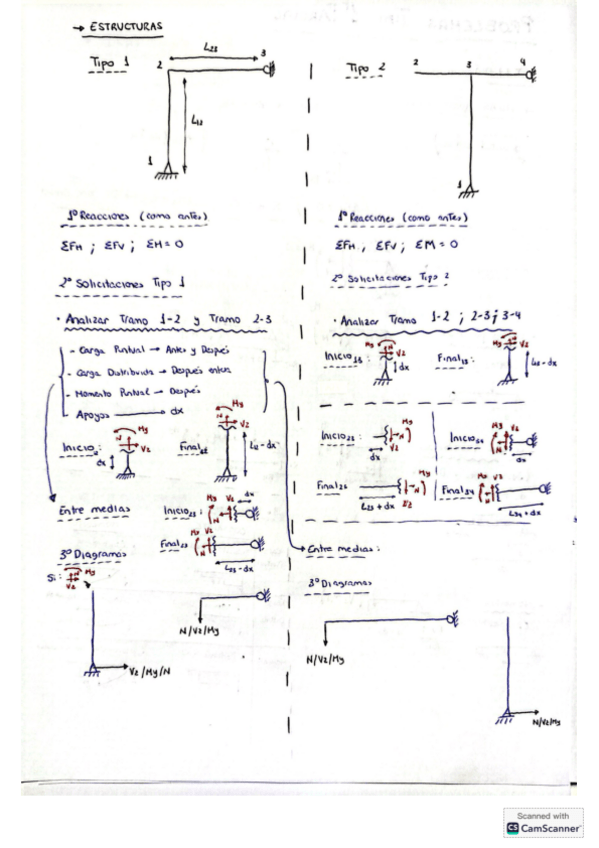 → ESTRUCTURAS
Tipo 1
2
L23
3
L12
1
1º Reacciones (como antes)
ΣFH ; ΣFV ; ΣM = 0
2º Solicitaciones Tipo 1
• Analizar Tramo 1-2 y Tramo 2-3
- Carga Puntual → Antes y Después
- Carga Distribuida → Después antes
- Momento Puntual → Después
- Apoyos → dx
Inicio
N My
Vz
dx
Final12
N My
Vz
L12 - dx
Entre medias
Inicio23:
My Vz dx
N
Final23
My Vz
N
L23 - dx
3º Diagramas
Si: N My
Vz
Vz/My/N
N/Vz/My
Tipo 2
2 3 4
1
1º Reacciones (como antes)
ΣFH , ΣFV ; ΣM = 0
2º Solicitaciones Tipo 2
• Analizar Tramo 1-2 ; 2-3 ; 3-4
Inicio13:
My N Vz
dx
Final13:
My N Vz
L13 - dx
Inicio23:
N My
Vz
dx
Inicio34:
My Vz
N
dx
Final23
N My
L23 + dx
Final34
My Vz
N
L34 + dx
Entre medias:
3º Diagramas
N/Vz/My
N/Vz/My
Scanned with
CS CamScanner